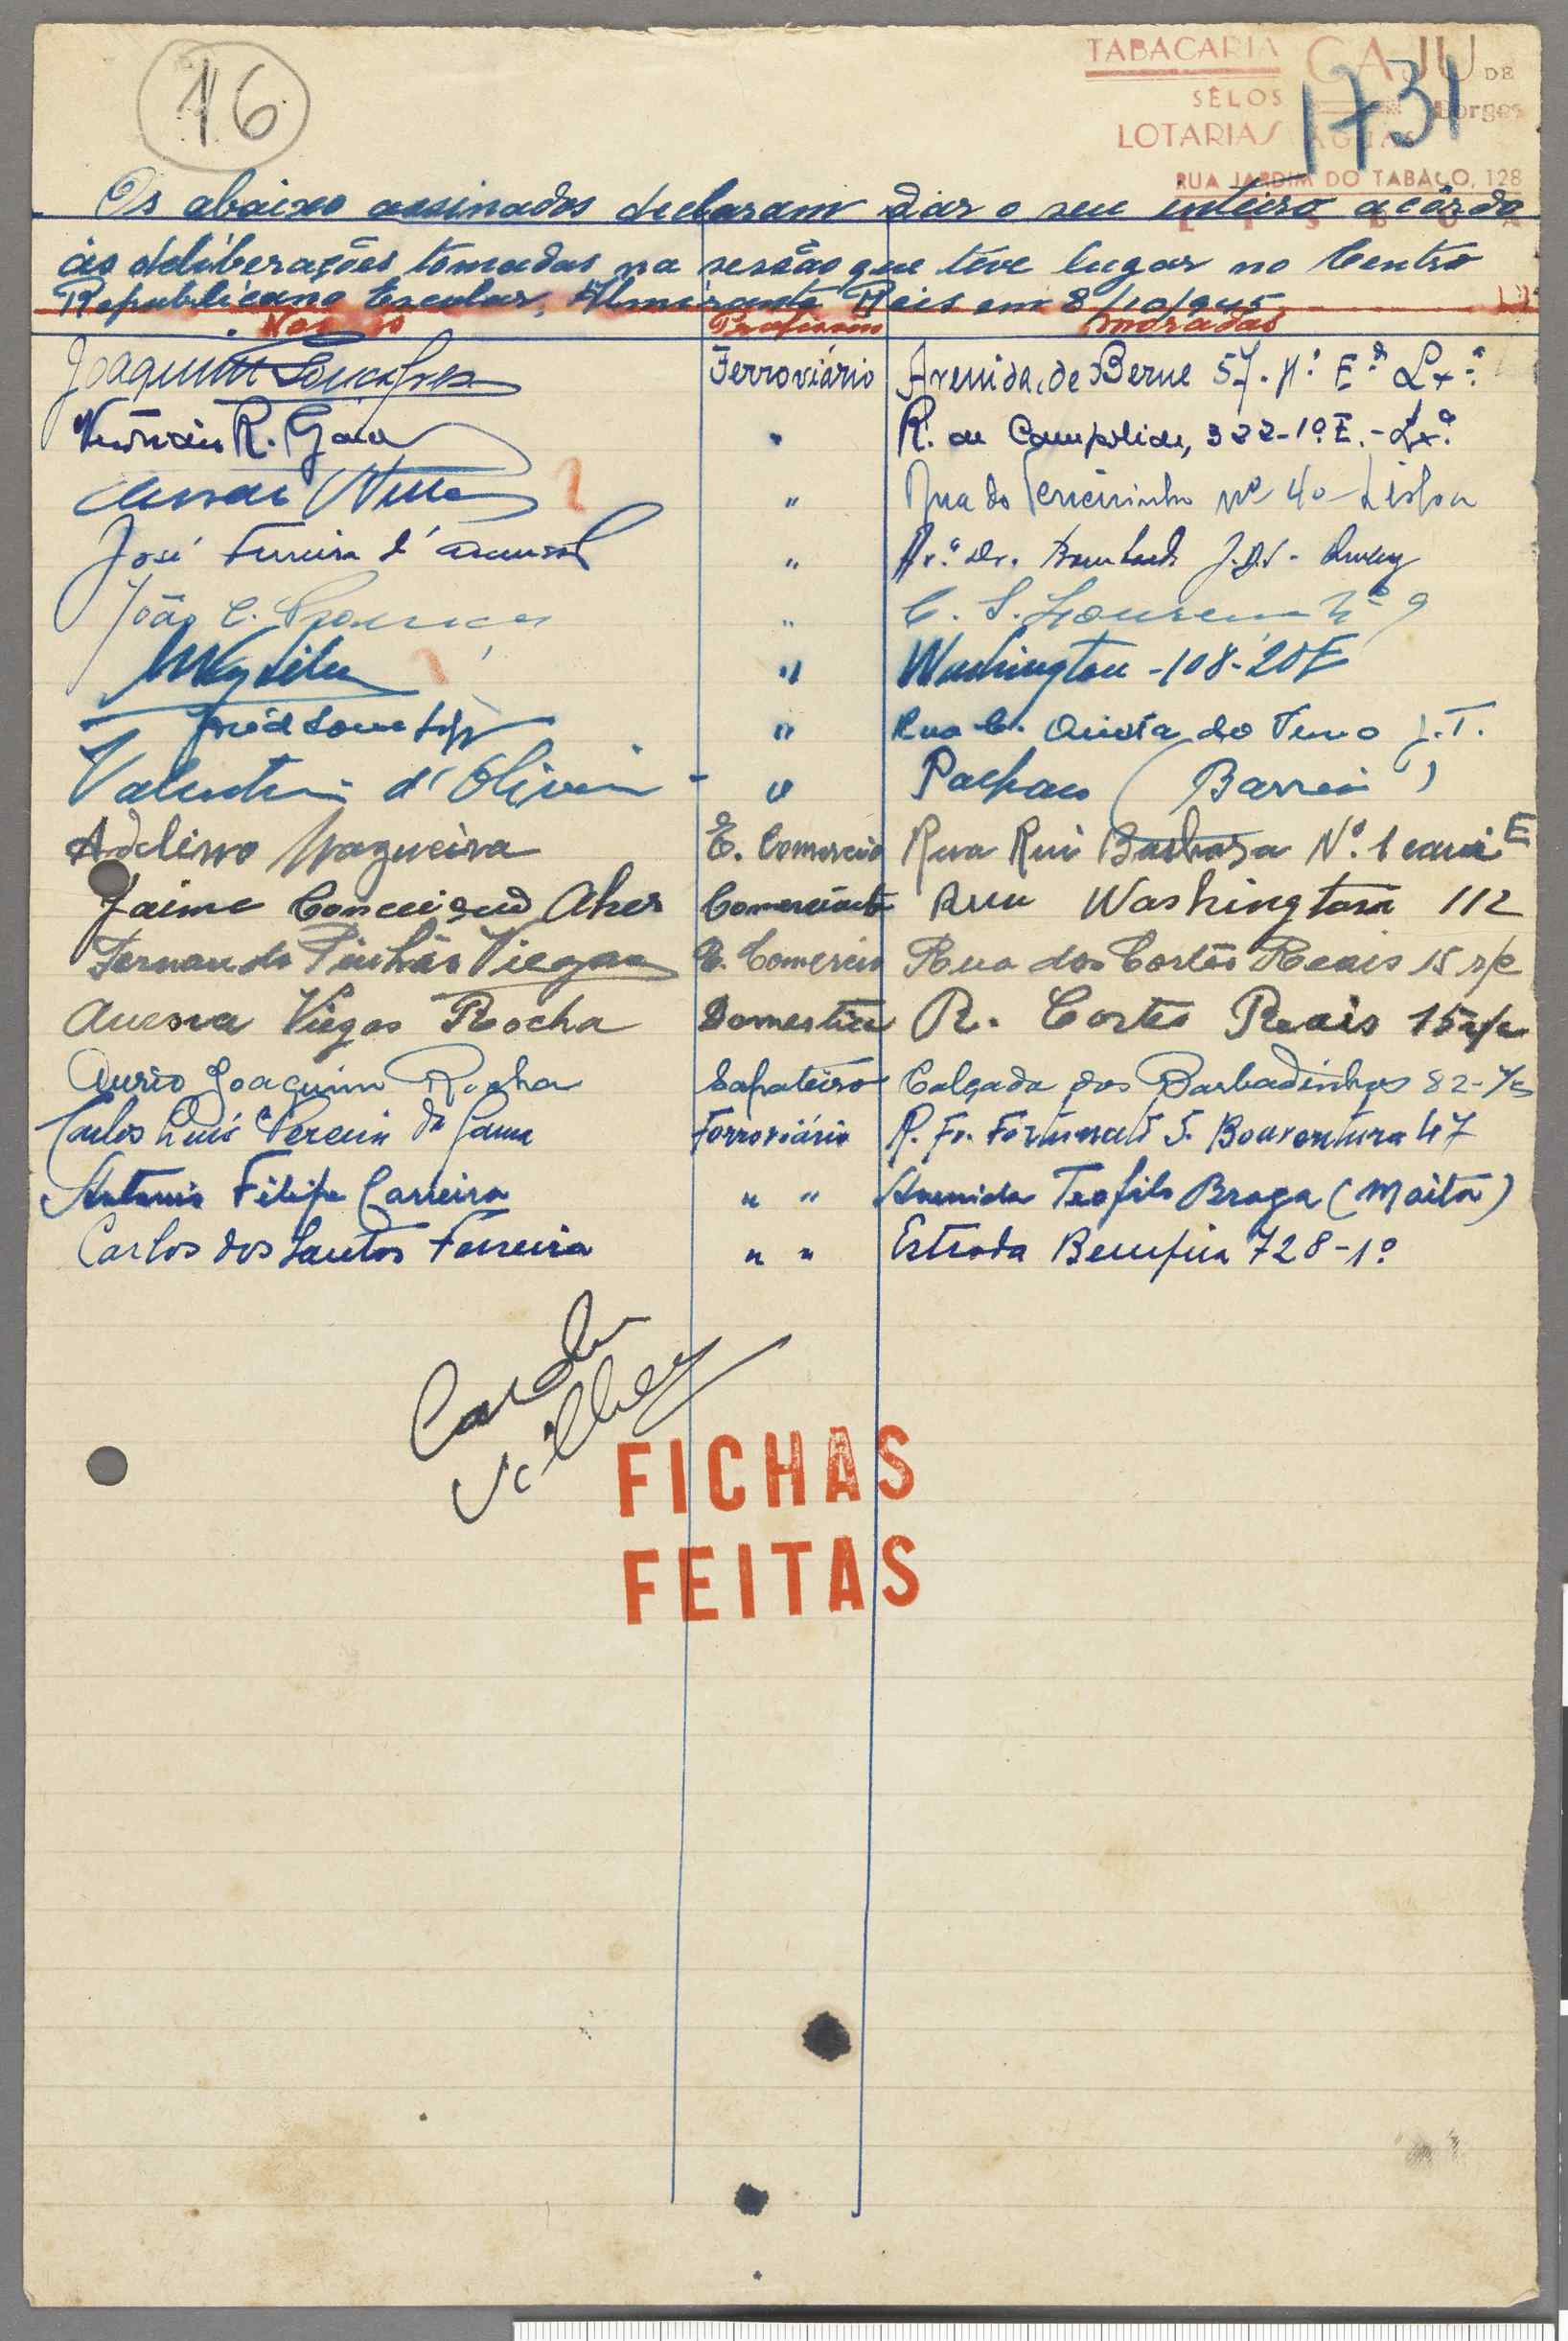 16
TABACARIA CAJU DE
SÊLOS Borges
LOTARIAS AGUAS
1731
RUA JARDIM DO TABACO, 128
LISBOA
Os abaixo assinados declaram dar o seu inteiro acôrdo
ás deliberações tomadas na sessão que teve lugar no Centro
Republicano Escolar, Almirante Reis em 8/10/945
Nomes Profissões Moradas
Joaquim Ferroviário Avenida de Berne 57. 4º E.º Lx.ª
R. Gaia " R. de Campolide, 322-1º E. - Lx.ª
" Rua do Terreirinho nº 40 Lisboa
José Ferreira d' " Av.ª Dr.
João C. " C. S. Lourenço nº 9
" Washington - 108-2º E
" Rua C. Quinta do J.T.
Valentim d'Oliveira - " Palhais (Barreiro)
Adelino Nogueira E. Comercio Rua Rui Barbosa Nº. 1 cave E
Jaime Conceição Alves Comerciante Rua Washington 112
Fernando Pinhão Viegas E. Comercio Rua dos Cortes Reais 15 r/c
Viegas Rocha Domestica R. Cortes Reais 15 r/c
Joaquim Rocha Sapateiro Calçada dos Barbadinhos 82-
Carlos Luís Pereira da Gama Ferroviário R. Fr. Fortunato S. Boaventura 47
Antonio Filipe Carreira " " Avenida Teofilo Braga (Moita)
Carlos dos Santos Ferreira " " Estrada Benfica 728-1º
FICHAS
FEITAS